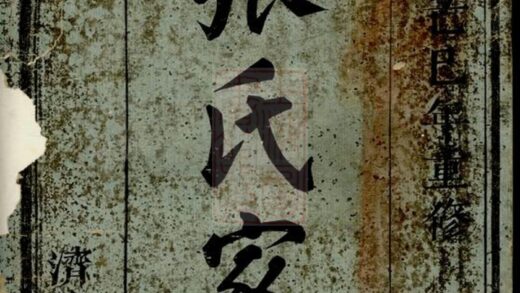 巳年重修
張氏家
濟